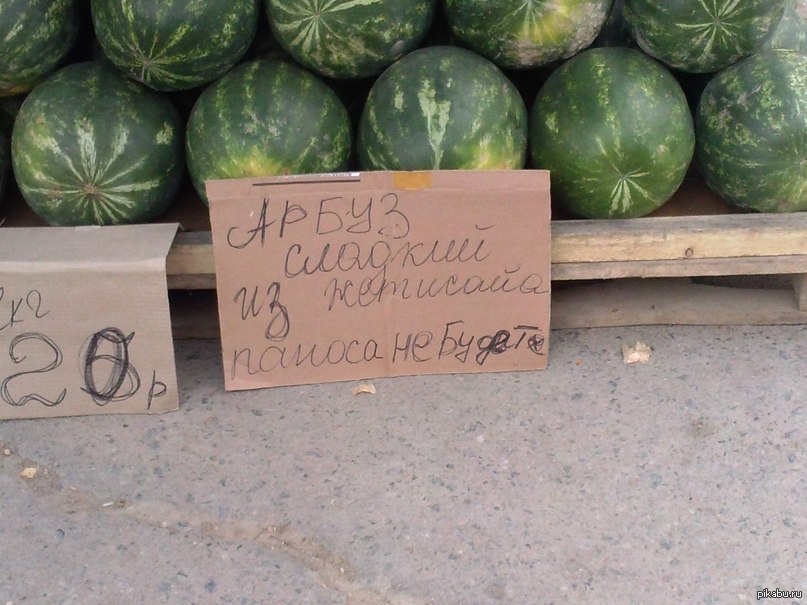 кг
20 р
АРБУЗ
сладкий
из жетисайа
паноса не Будет
pikabu.ru